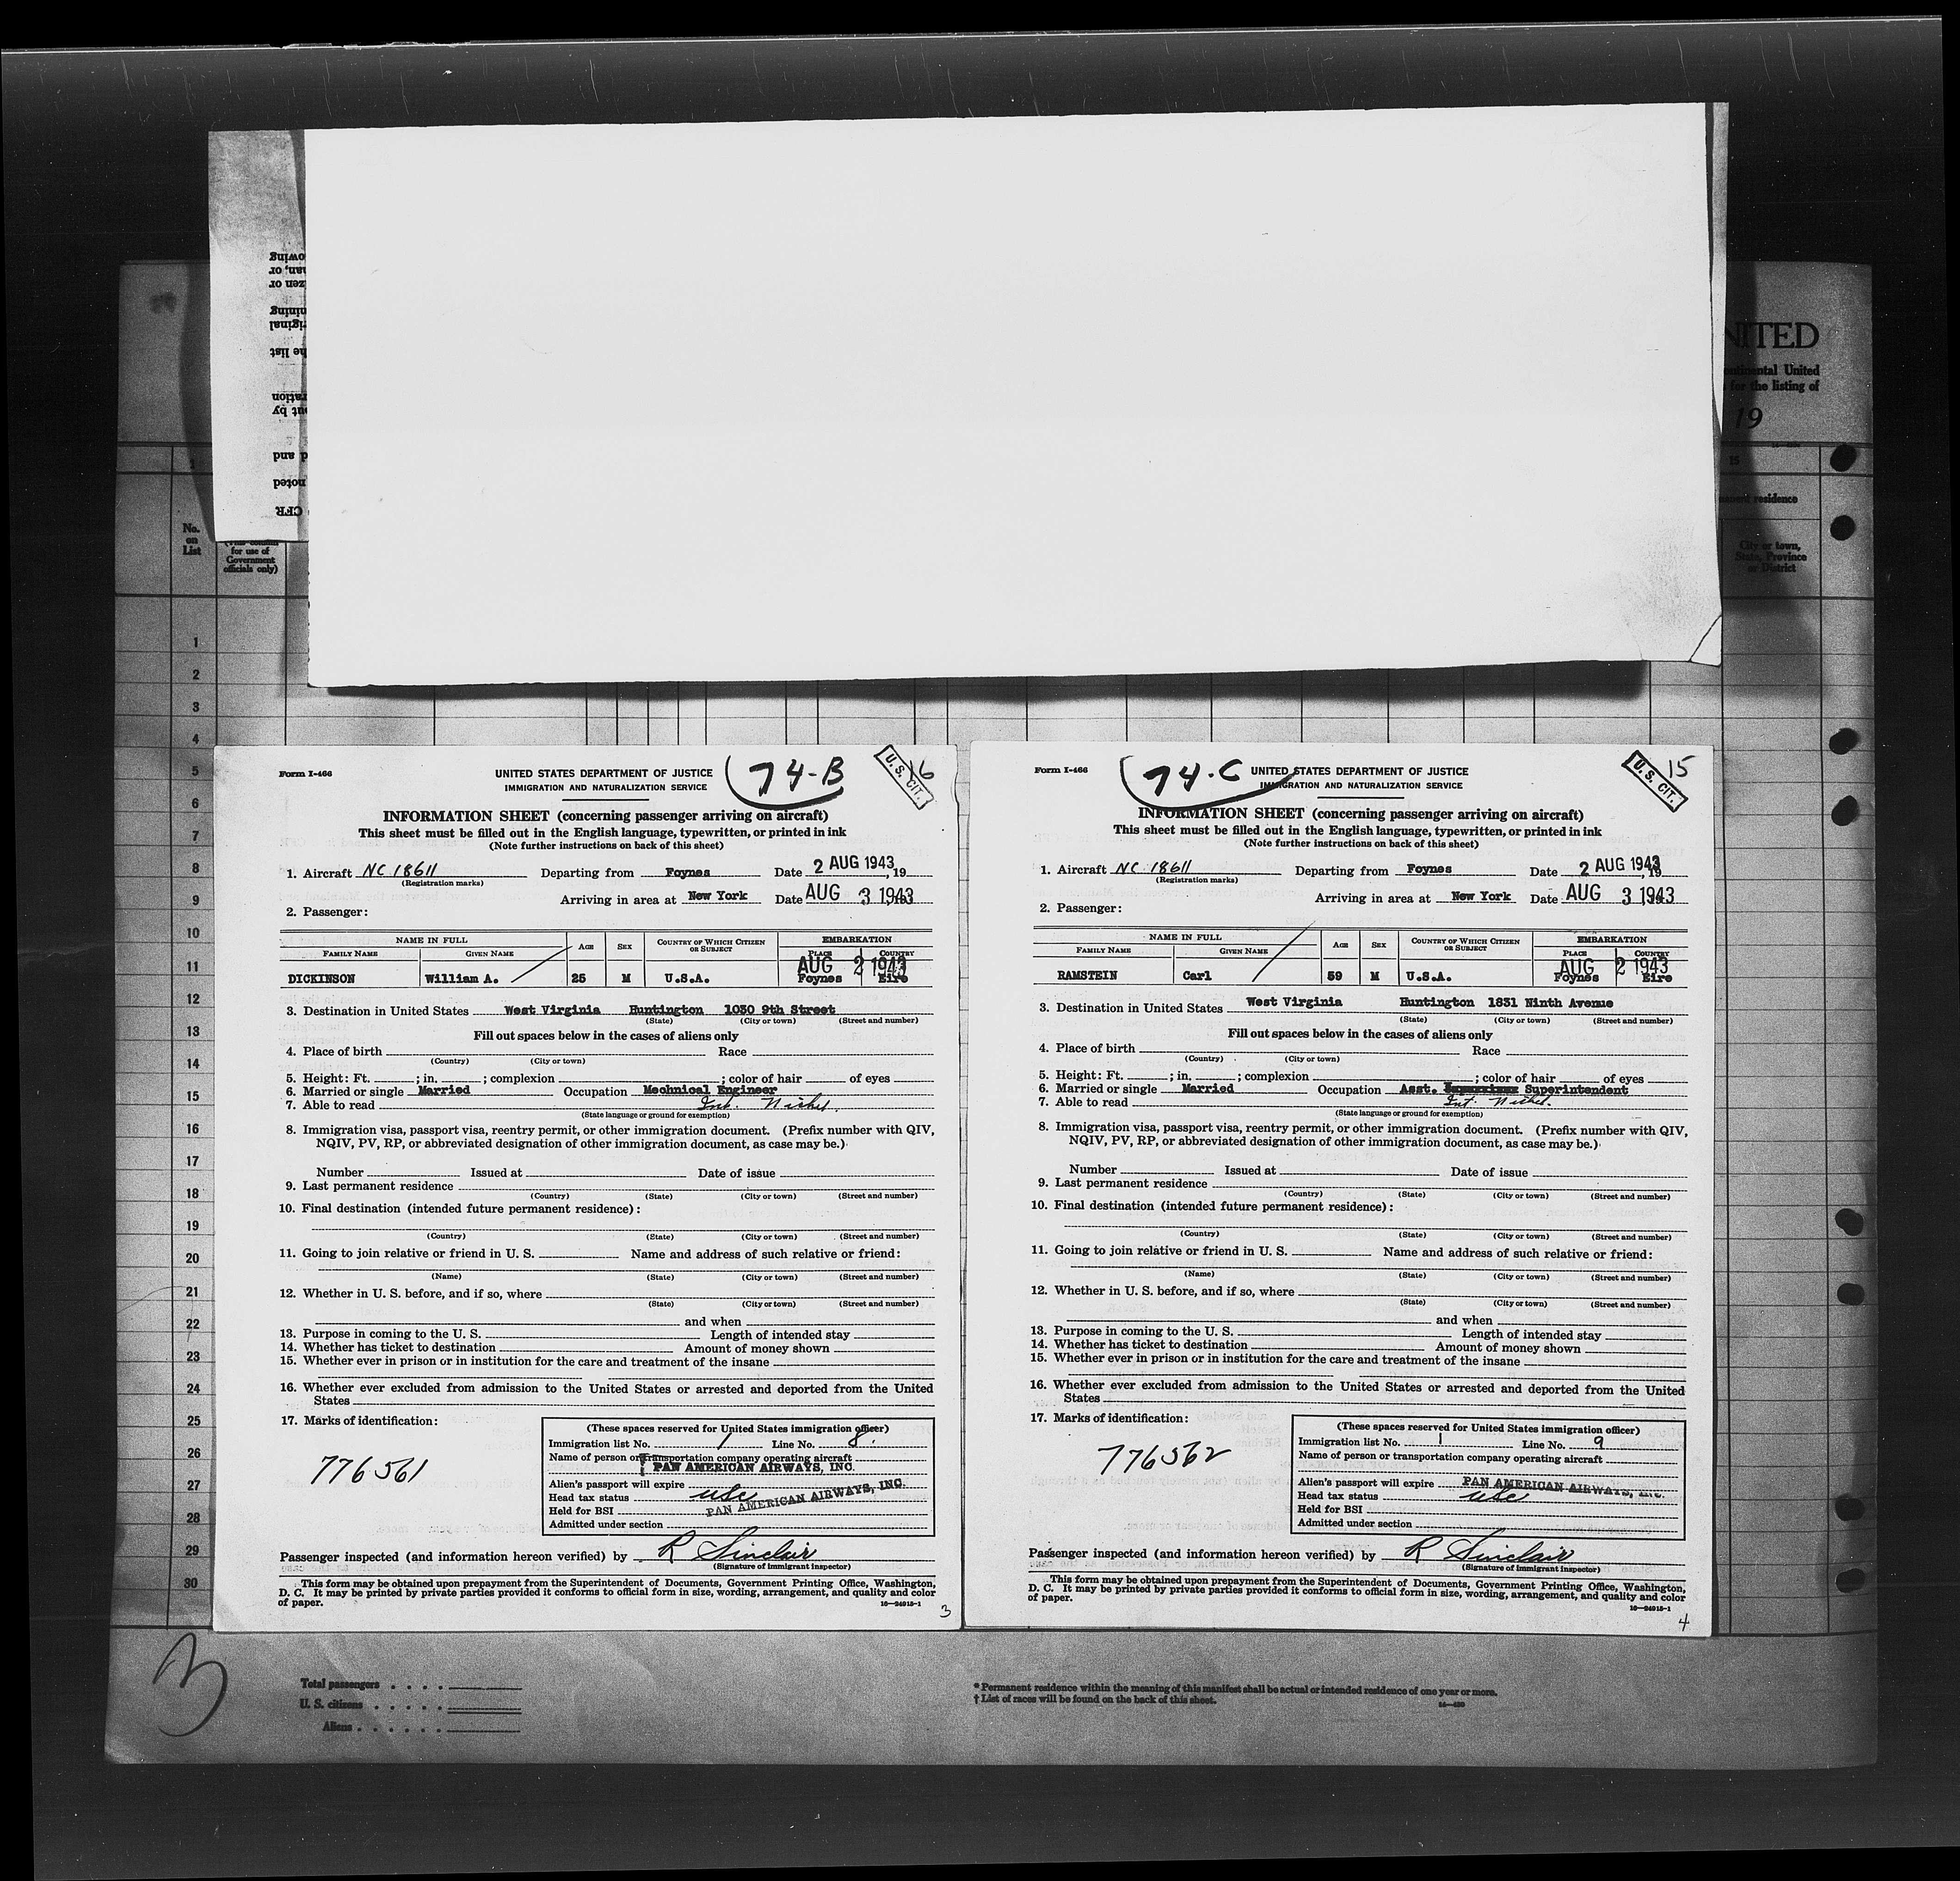 owing
nan, or
zen or
mining
riginal
he list
ration
out by
d and
noted
CFR
NITED
ontinental United
for the listing of
19
15
residence
City or town,
State, Province
or District
No.
on
List
for use of
Government
officials only)
1
2
3
4
5
6
7
8
9
10
11
12
13
14
15
16
17
18
19
20
21
22
23
24
25
26
27
28
29
30
Form I-466
UNITED STATES DEPARTMENT OF JUSTICE
74-B
U. S. CIT.
16
IMMIGRATION AND NATURALIZATION SERVICE
INFORMATION SHEET (concerning passenger arriving on aircraft)
This sheet must be filled out in the English language, typewritten, or printed in ink
(Note further instructions on back of this sheet)
1. Aircraft NC 18611 Departing from Foynes Date 2 AUG 1943, 19
(Registration marks)
Arriving in area at New York Date AUG 3 1943
2. Passenger:
NAME IN FULL AGE SEX COUNTRY OF WHICH CITIZEN OR SUBJECT EMBARKATION
FAMILY NAME GIVEN NAME PLACE COUNTRY
AUG 2 1943
DICKINSON William A. 25 M U.S.A. Foynes Eire
3. Destination in United States West Virginia Huntington 1030 9th Street
(State) (City or town) (Street and number)
Fill out spaces below in the cases of aliens only
4. Place of birth Race
(Country) (City or town)
5. Height: Ft. ; in. ; complexion ; color of hair of eyes
6. Married or single Married Occupation Mechnical Engineer
7. Able to read Int. Nickel.
(State language or ground for exemption)
8. Immigration visa, passport visa, reentry permit, or other immigration document. (Prefix number with QIV,
NQIV, PV, RP, or abbreviated designation of other immigration document, as case may be.)
Number Issued at Date of issue
9. Last permanent residence
(Country) (State) (City or town) (Street and number)
10. Final destination (intended future permanent residence):
(Country) (State) (City or town) (Street and number)
11. Going to join relative or friend in U. S. Name and address of such relative or friend:
(Name) (State) (City or town) (Street and number)
12. Whether in U. S. before, and if so, where
(State) (City or town) (Street and number)
and when
13. Purpose in coming to the U. S. Length of intended stay
14. Whether has ticket to destination Amount of money shown
15. Whether ever in prison or in institution for the care and treatment of the insane
16. Whether ever excluded from admission to the United States or arrested and deported from the United
States
17. Marks of identification:
776561
(These spaces reserved for United States immigration officer)
Immigration list No. 1 Line No. 8.
Name of person or transportation company operating aircraft
PAN AMERICAN AIRWAYS, INC.
Alien's passport will expire
Head tax status usc
PAN AMERICAN AIRWAYS, INC.
Held for BSI
Admitted under section
Passenger inspected (and information hereon verified) by R Sinclair
(Signature of immigrant inspector)
This form may be obtained upon prepayment from the Superintendent of Documents, Government Printing Office, Washington,
D. C. It may be printed by private parties provided it conforms to official form in size, wording, arrangement, and quality and color
of paper.
16—24915-1
3
Form I-466
74-C
UNITED STATES DEPARTMENT OF JUSTICE
U. S. CIT.
15
IMMIGRATION AND NATURALIZATION SERVICE
INFORMATION SHEET (concerning passenger arriving on aircraft)
This sheet must be filled out in the English language, typewritten, or printed in ink
(Note further instructions on back of this sheet)
1. Aircraft NC 18611 Departing from Foynes Date 2 AUG 1943, 19
(Registration marks)
Arriving in area at New York Date AUG 3 1943
2. Passenger:
NAME IN FULL AGE SEX COUNTRY OF WHICH CITIZEN OR SUBJECT EMBARKATION
FAMILY NAME GIVEN NAME PLACE COUNTRY
AUG 2 1943
RAMSTEIN Carl 59 M U.S.A. Foynes Eire
3. Destination in United States West Virginia Huntington 1831 Ninth Avenue
(State) (City or town) (Street and number)
Fill out spaces below in the cases of aliens only
4. Place of birth Race
(Country) (City or town)
5. Height: Ft. ; in. ; complexion ; color of hair of eyes
6. Married or single Married Occupation Asst. Superintendent
7. Able to read Int. Nickel.
(State language or ground for exemption)
8. Immigration visa, passport visa, reentry permit, or other immigration document. (Prefix number with QIV,
NQIV, PV, RP, or abbreviated designation of other immigration document, as case may be.)
Number Issued at Date of issue
9. Last permanent residence
(Country) (State) (City or town) (Street and number)
10. Final destination (intended future permanent residence):
(Country) (State) (City or town) (Street and number)
11. Going to join relative or friend in U. S. Name and address of such relative or friend:
(Name) (State) (City or town) (Street and number)
12. Whether in U. S. before, and if so, where
(State) (City or town) (Street and number)
and when
13. Purpose in coming to the U. S. Length of intended stay
14. Whether has ticket to destination Amount of money shown
15. Whether ever in prison or in institution for the care and treatment of the insane
16. Whether ever excluded from admission to the United States or arrested and deported from the United
States
17. Marks of identification:
776562
(These spaces reserved for United States immigration officer)
Immigration list No. 1 Line No. 9
Name of person or transportation company operating aircraft
Alien's passport will expire PAN AMERICAN AIRWAYS, INC.
Head tax status usc
Held for BSI
Admitted under section
Passenger inspected (and information hereon verified) by R Sinclair
(Signature of immigrant inspector)
This form may be obtained upon prepayment from the Superintendent of Documents, Government Printing Office, Washington,
D. C. It may be printed by private parties provided it conforms to official form in size, wording, arrangement, and quality and color
of paper.
16—24915-1
4
3
Total passengers
U. S. citizens
Aliens
* Permanent residence within the meaning of this manifest shall be actual or intended residence of one year or more.
† List of races will be found on the back of this sheet.